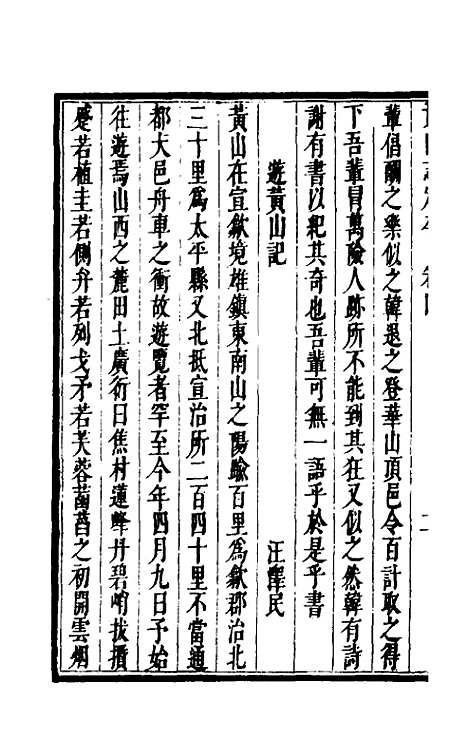 輩倡酬之樂似之韓退之登華山頂邑令百計取之得
下吾輩冒萬險人跡所不能到其狂又似之然韓有詩
謝有書以紀其奇也吾輩可無一語乎於是乎書
遊黃山記 汪澤民
黃山在宣歙境雄鎮東南山之陽踰百里為歙郡治北
三十里為太平縣又北抵宣治所二百四十里不當通
都大邑舟車之衝故遊覽者罕至今年四月九日予始
往遊焉山西之麓田土廣衍曰焦村蓮峰丹碧峭拔攢
蹙若植圭若側弁若列戈矛若芙蓉菡萏之初開雲烟